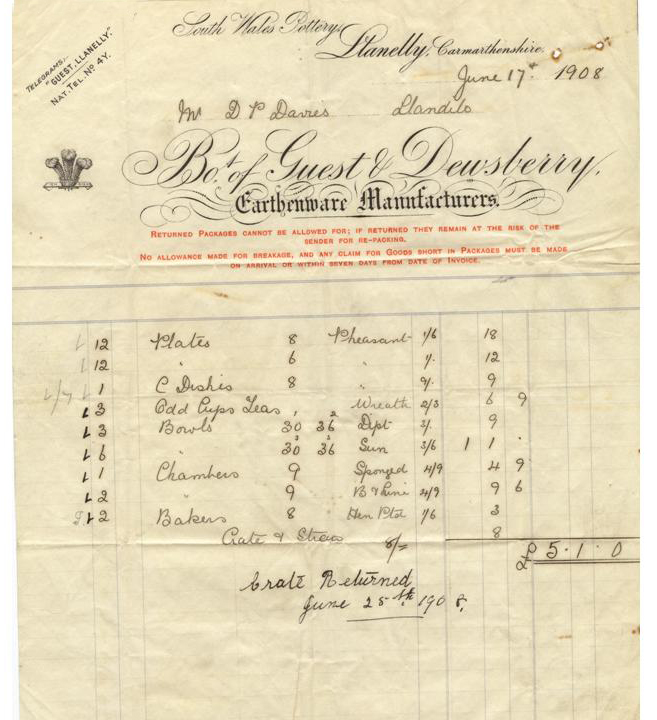 South Wales Pottery,
Llanelly, Carmarthenshire.
TELEGRAMS:-
"GUEST, LLANELLY."
NAT. TEL. NO 4Y.
June 17th 1908
Mr D P Davies Llandilo
Bot. of Guest & Dewsberry,
Earthenware Manufacturers.
RETURNED PACKAGES CANNOT BE ALLOWED FOR; IF RETURNED THEY REMAIN AT THE RISK OF THE
SENDER FOR RE-PACKING.
NO ALLOWANCE MADE FOR BREAKAGE, AND ANY CLAIM FOR GOODS SHORT IN PACKAGES MUST BE MADE
ON ARRIVAL OR WITHIN SEVEN DAYS FROM DATE OF INVOICE.
12 Plates 8 Pheasant 1/6 18
12 " 6 " 1/- 12
1 C Dishes 8 " 9/- 9
3 Odd Cups Teas Wreath 2/3 6 9
3 Bowls 30 36 Dpt 3/- 9
6 30 36 Sun 3/6 1 1 -
1 Chambers 9 Sponged 4/9 4 9
2 9 B & Line 4/9 9 6
2 Bakers 8 1/6 3
Crate & Straw 8/= 8
£5-1-0
Crate Returned
June 25th 1908.